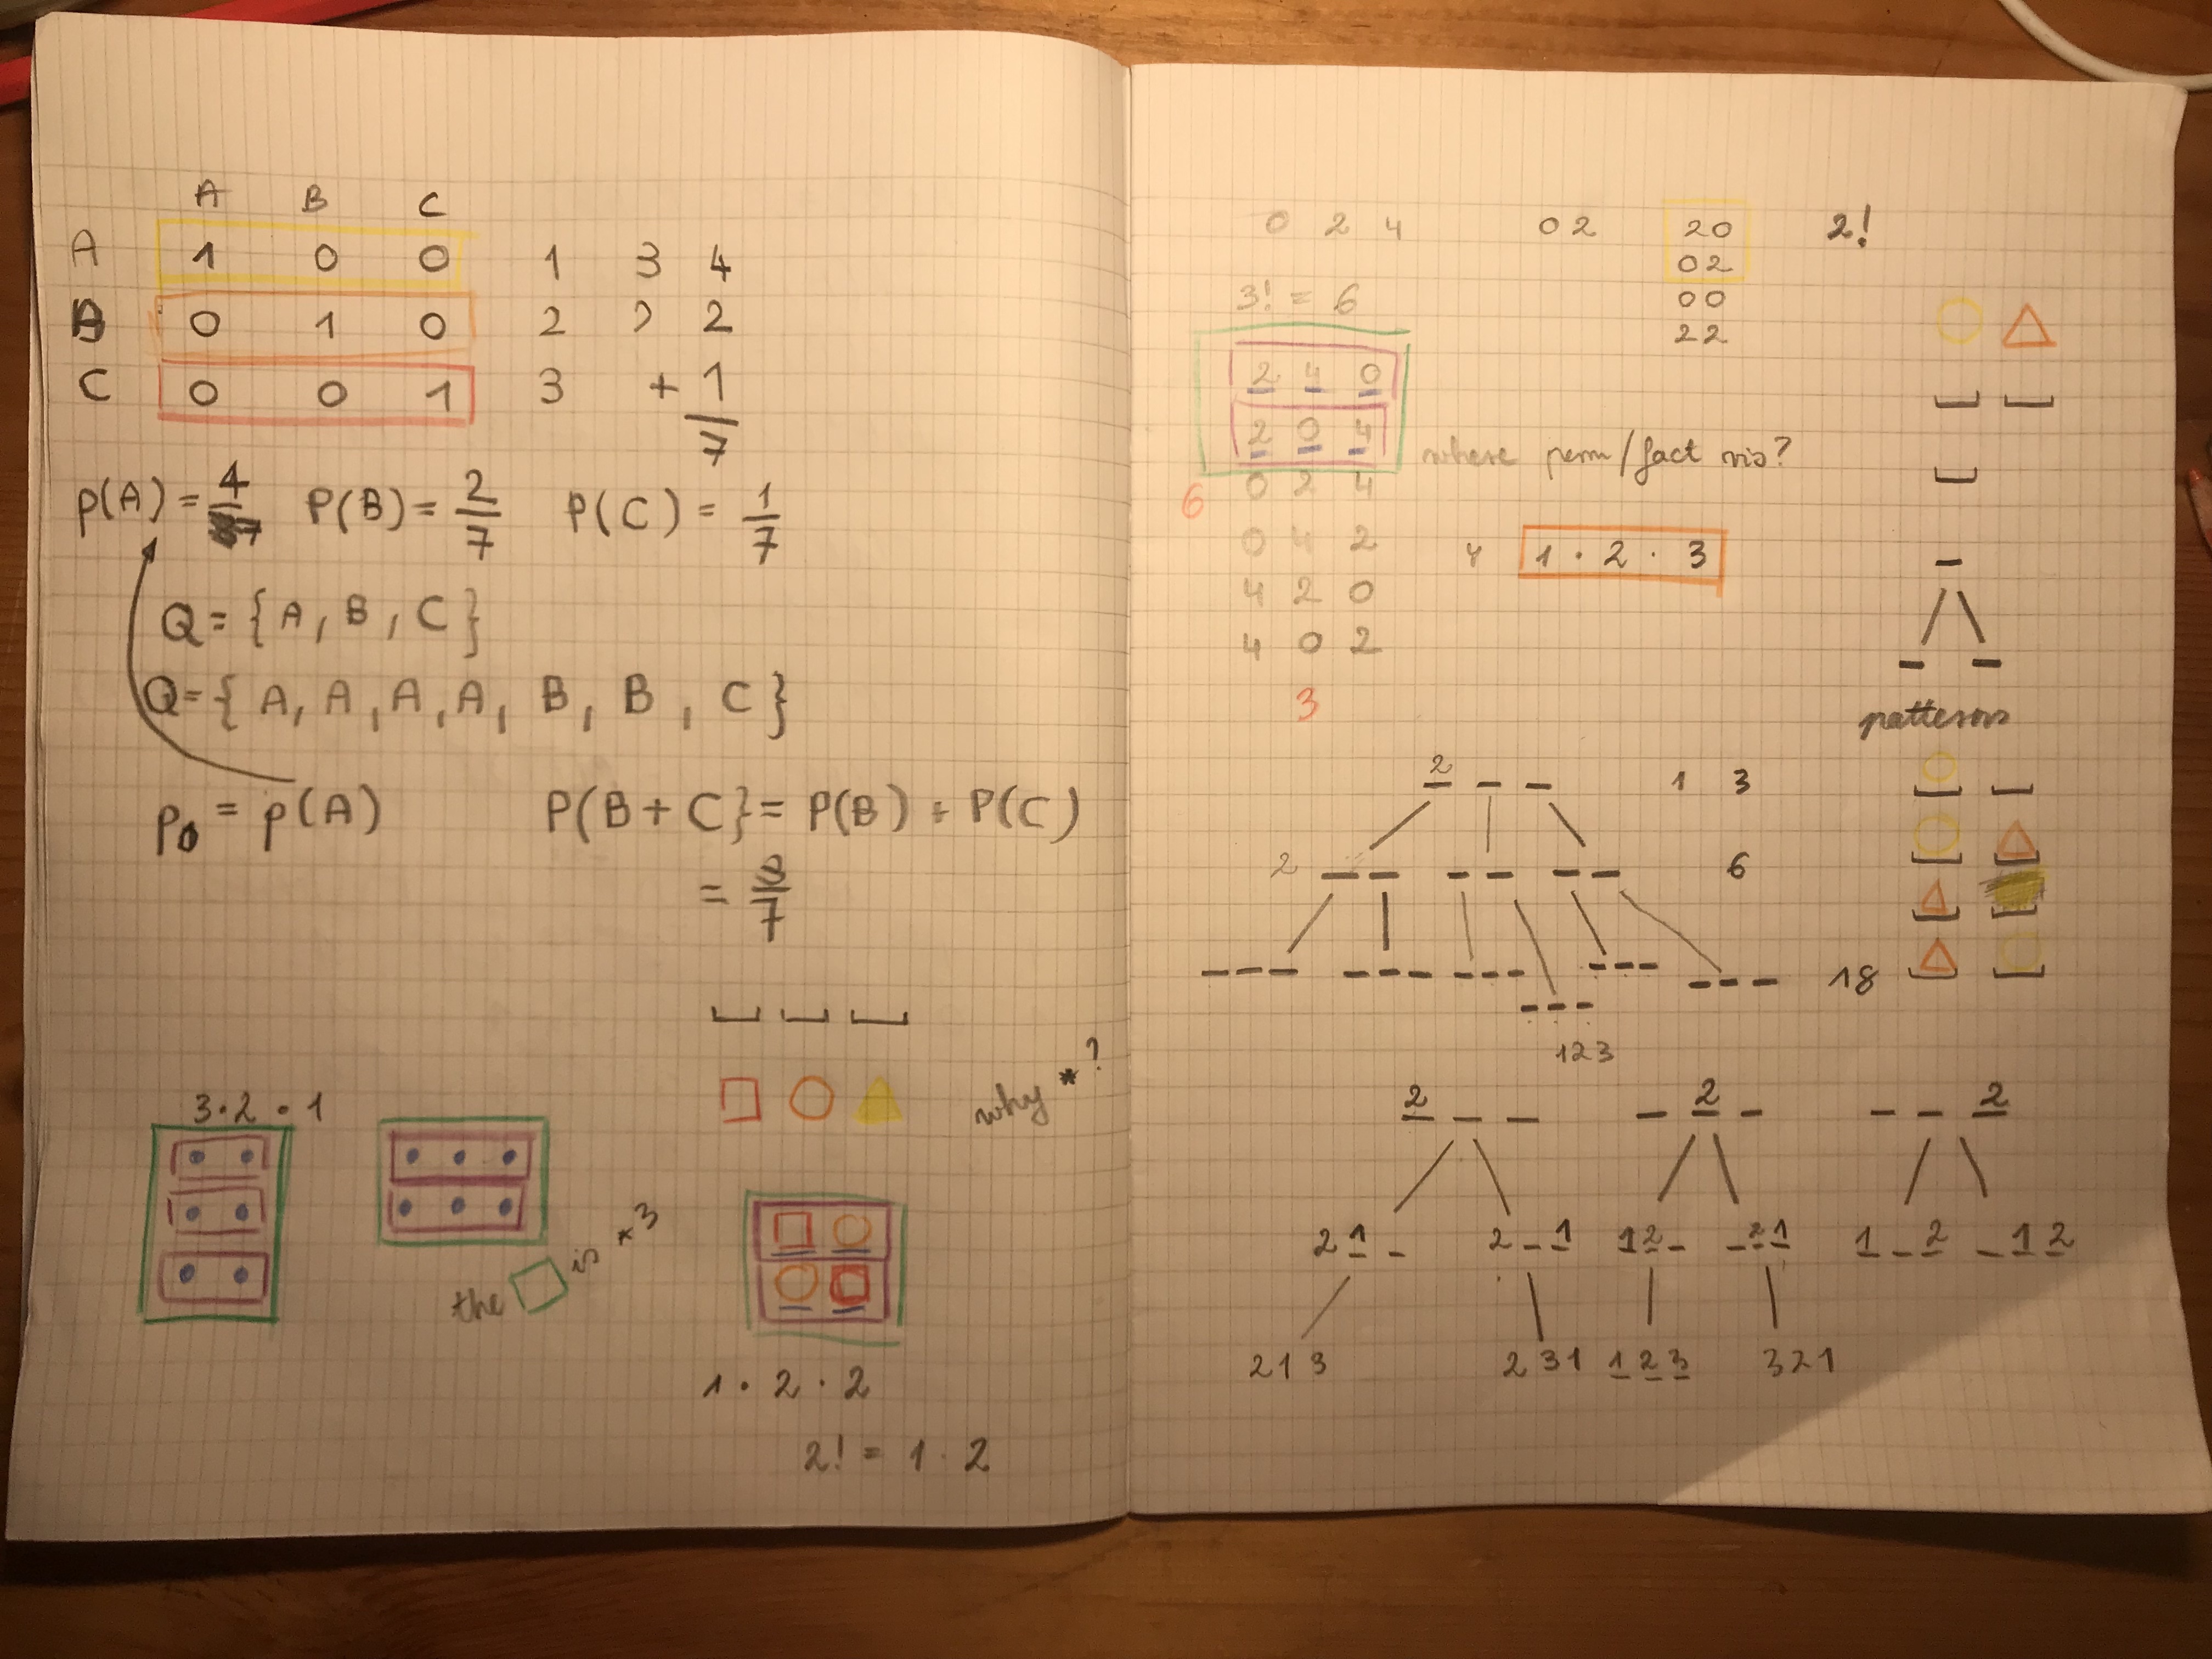 A B C
A 1 0 0 1 3 4
B 0 1 0 2 2
C 0 0 1 3 + 1
7
p(A) = 4/7 P(B) = 2/7 P(C) = 1/7
Q = { A, B, C }
Q = { A, A, A, A, B, B, C }
p0 = p(A) P(B + C} = P(B) + P(C)
= 3/7
why * ?
3 · 2 · 1
the is * 3
1 · 2 · 2
2! = 1 · 2
0 2 4 02 20 2!
02
3! = 6 00
22
2 4 0
2 0 4 where perm/fact vis?
6 0 2 4
0 4 2 4 1 · 2 · 3
4 2 0
4 0 2
3
patterns
2 _ _ 1 3
2 _ _ _ _ _ _ 6
_ _ _ _ _ _ _ _ _ _ _ _ _ _ _ 18
_ _ _
123
2 _ _ _ 2 _ _ _ 2
2 1 _ 2 _ 1 1 2 _ _ 2 1 1 _ 2 _ 1 2
2 1 3 2 3 1 1 2 3 3 2 1